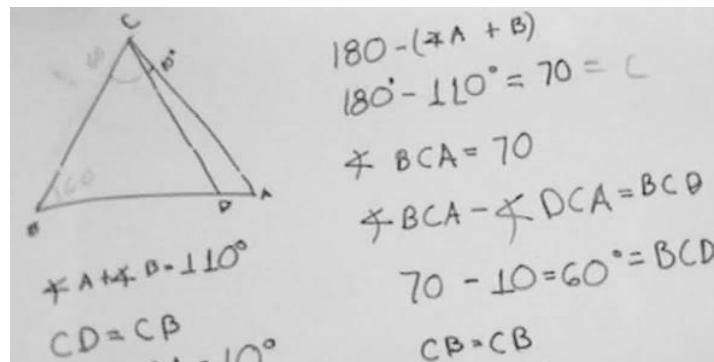 C
10°
60
B
D
A
∡ A + ∡ B = 110°
CD = CB
10°
180 - (∡A + B)
180° - 110° = 70 = C
∡ BCA = 70
∡BCA - ∡DCA = BCD
70 - 10 = 60° = BCD
CB = CB